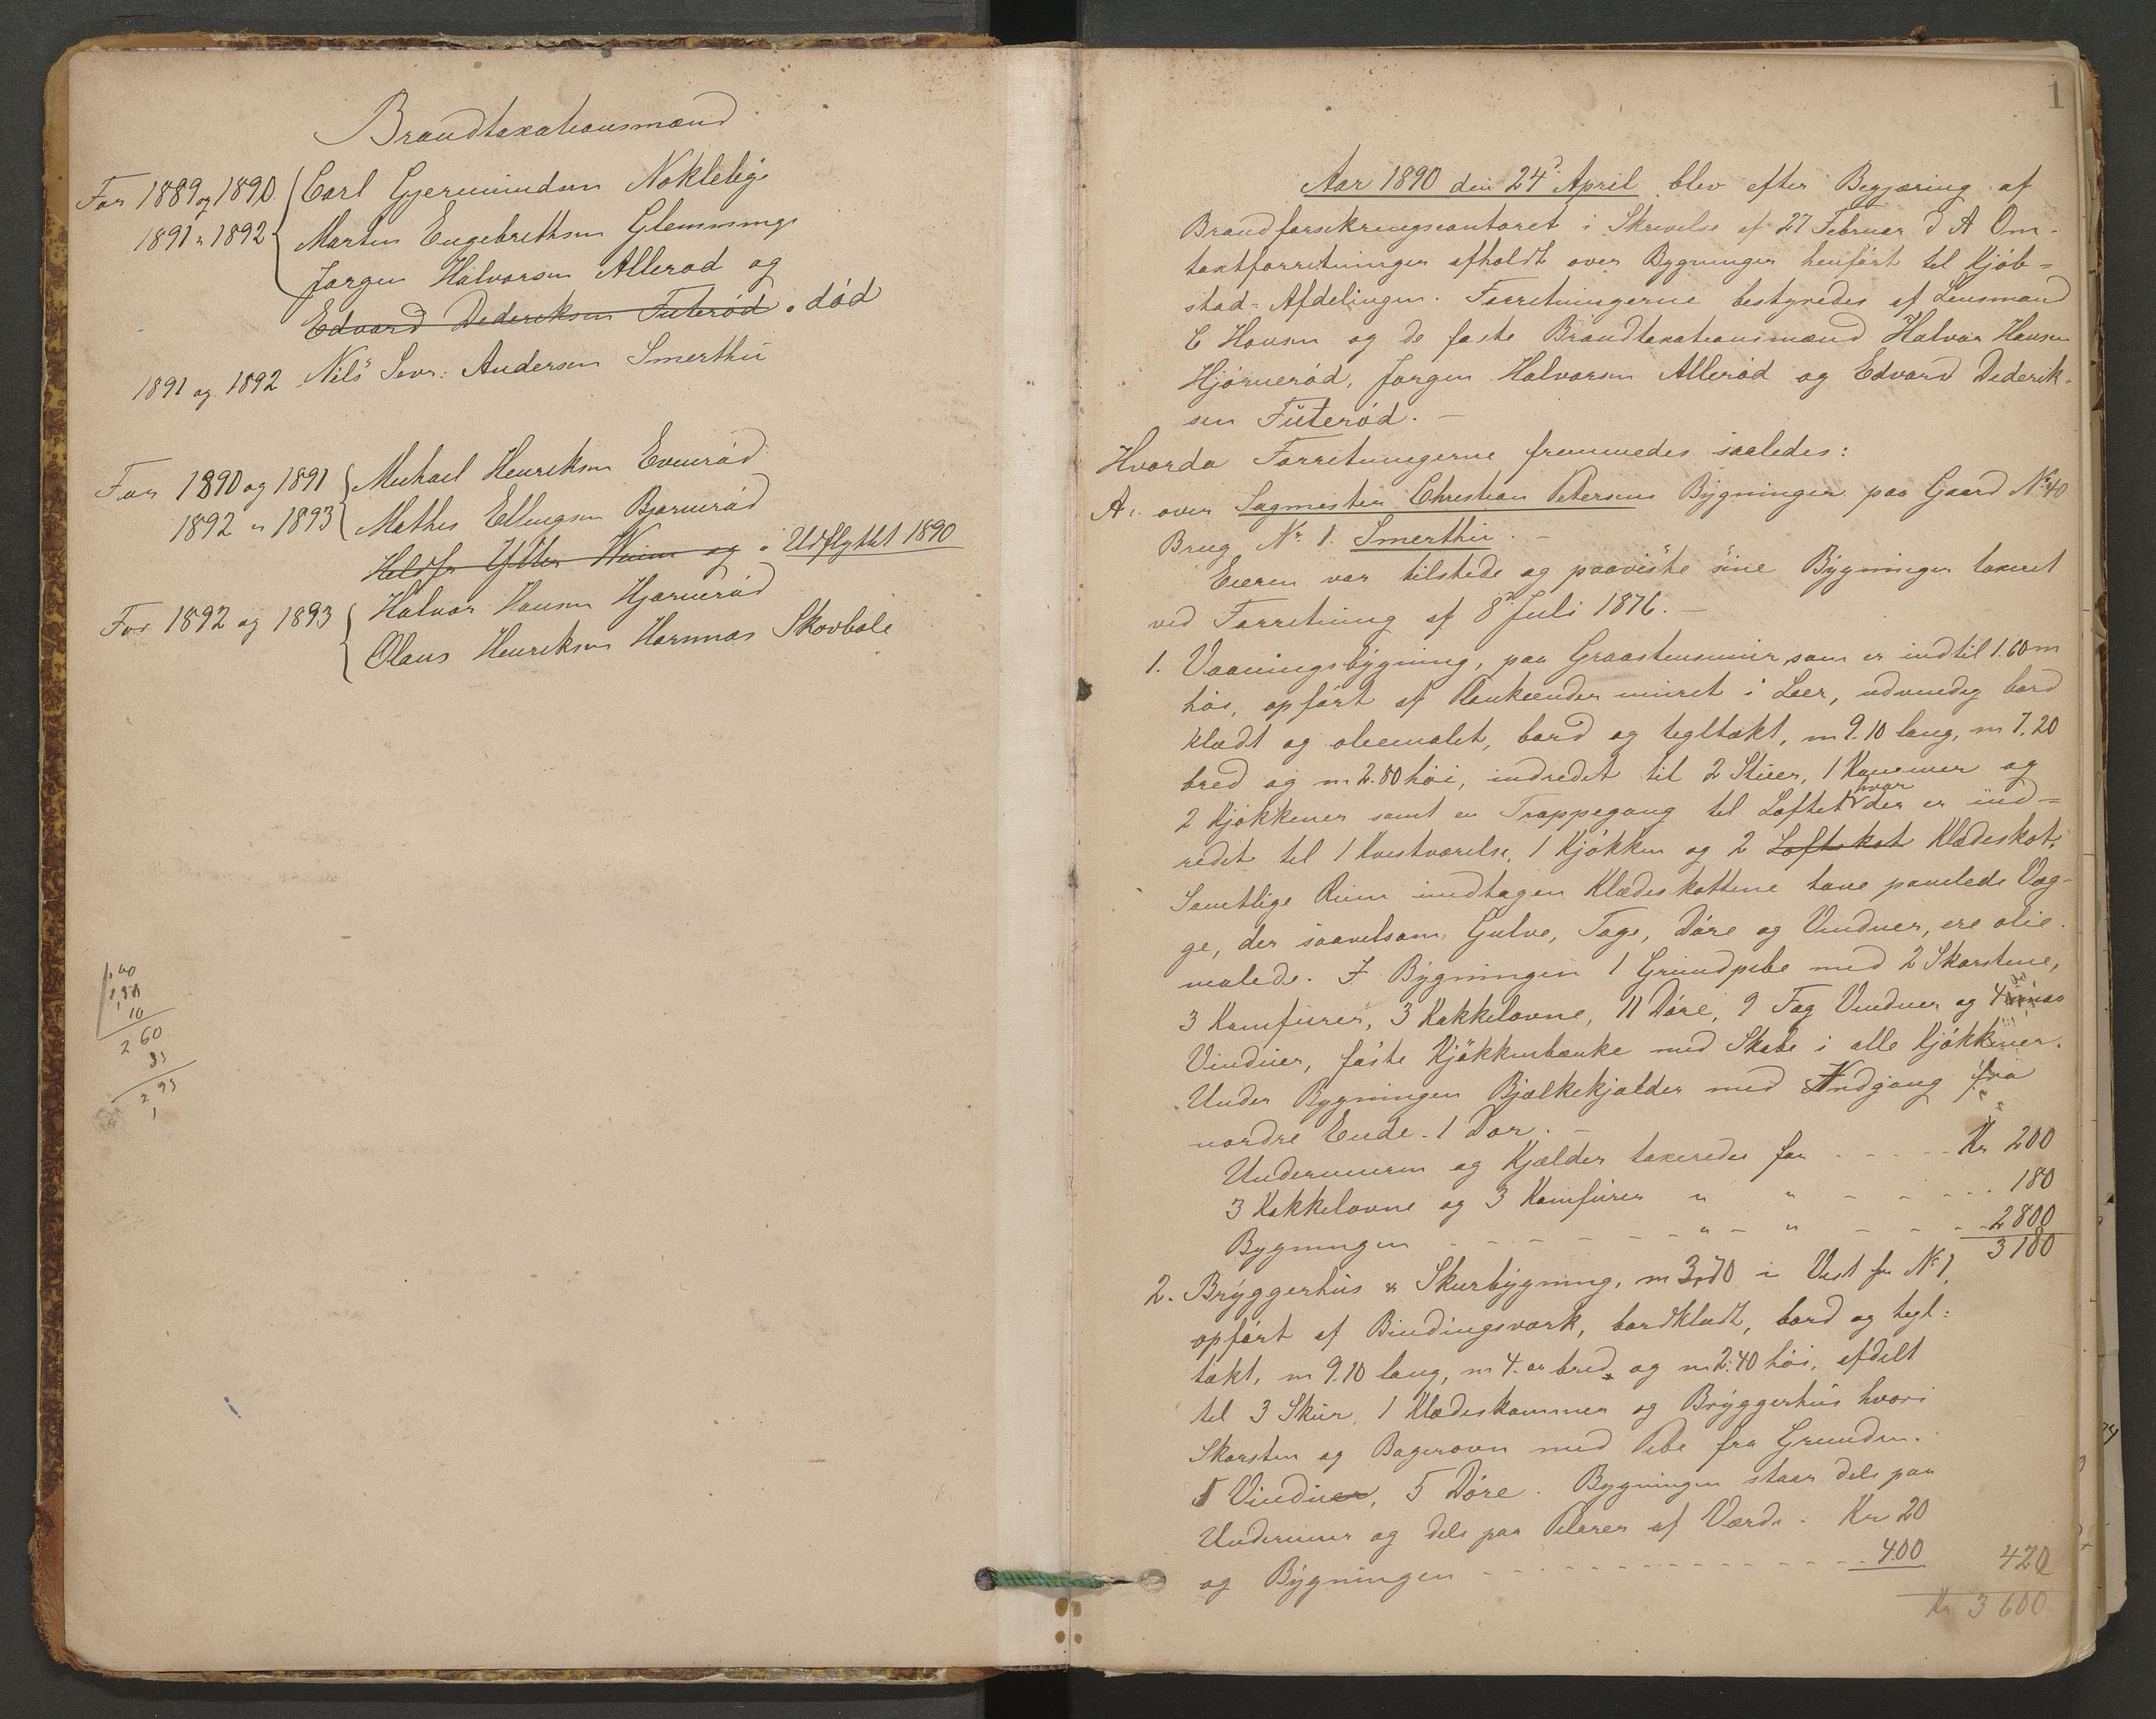 Brandtaxationsmænd
For 1889 og 1890 Carl Gjermundsen Nøkleby
1891 " 1892 Martin Engebrethsen Glemminge
Jørgen Halvorsen Allerød og
Edvard Dederiksen Futerød . død
1891 og 1892 Nils Sevr: Andersen Smerthu
For 1890 og 1891 Michael Henriksen Evenrød
1892 " 1893 Mathis Ellingsen Bjørnerød
og . Udflyttet 1890
For 1892 og 1893 Halvor Hansen Hjørnerød
Olaus Henriksen Hornnæs Skovbole
10
2 60
35
2 95
1
1
Aar 1890 den 24d April blev efter Begjæring af
Brandforsikringscontoret i Skrivelse af 27 Februar d A Om-
taxtforretninger afholdt over Bygninger henført til Kjøb=
stad=Afdelingen. Forretningerne bestyredes af Lensmand
C Hansen og de faste Brandtaxationsmænd Halvor Hansen
Hjørnerød, Jørgen Halvorsen Allerød og Edvard Dederik-
sen Futerød. -
Hvorda Forretningerne fremmedes saaledes:
A: over Sagmester Christian Petersens Bygninger paa Gaard No 40
Brug No 1. Smerthu. -
Eieren var tilstede og paaviste sine Bygninger taxeret
ved Forretning af 8d Juli 1876. -
1. Vaaningsbygning, paa Graastensmur, som er indtil 1.60 m
høi, opført af Plankeender muret i Leer, udvendig bord
klædt og oliemalet, bord og tegltækt, m 9.10 lang, m 7.20
bred og m 2.80 høi, indredet til 2 Stuer, 1 Kammer og
2 Kjøkkener samt en Trappegang til Loftet hvor der er ind=
redet til 1 Kvistværelse, 1 Kjøkken og 2 Loftskot Klædeskot,
Samtlige Rum undtagen Klædeskottene have panelede Væg-
ge, der saavelsom Gulve, Tage, Døre og Vinduer, ere olie-
malede. I Bygningen 1 Grundpibe med 2 Skorstene,
3 Komfurer, 3 Kakkelovne, 11 Døre, 9 Fag Vinduer og 4 smaa
Vinduer, faste Kjøkkenbænke med Skabe i alle Kjøkkener.
Under Bygningen Bjælkekjælder med Indgang fra
nordre Ende. 1 Dør. -
Undermuren og Kjælder taxeredes for - - - - - Kr 200
3 Kakkelovne og 3 Komfurer " " - - - - 180
Bygningen - - - - - - - " - " - - - 2800
3180
2. Bryggerhus & Skurbygning, m 3,70 i Vest fr No 1,
opført af Bindingsværk, bordklædt, bord og tegl=
tækt, m 9.10 lang, m 4. bred og m 2.40 høi, afdelt
til 3 Skur, 1 Klædeskammer og Bryggerhus hvori
Skorsten og Bagerovn med Pibe fra Grunden.
1 Vinduer, 5 Døre. Bygningen staar dels paa
Undermur og dels paa Pilarer af Værdi - Kr 20
og Bygningen - - - - - - - - - - - 400 420
Kr 3 600